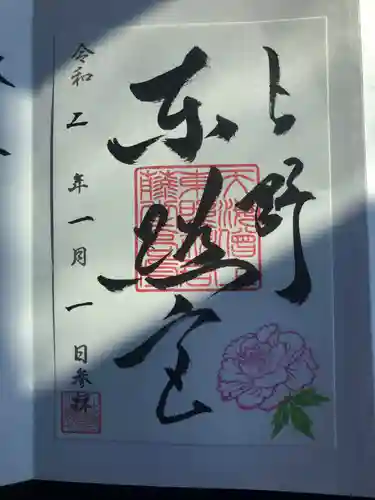 上野
東照宮
令和二年一月一日参拝